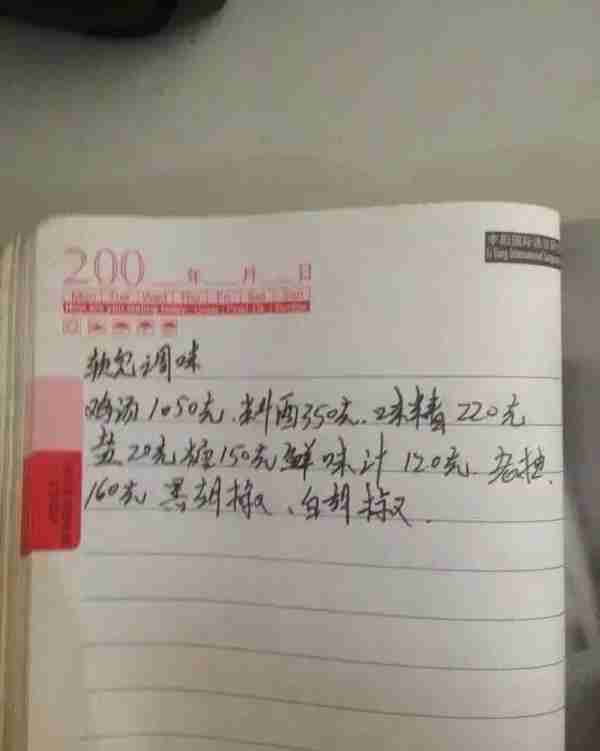 200 年 月 日
Mon Tue Wed Thu Fri Sat Sun
李阳国际
Li Yang International
软兜调味
鸡汤1050克.料酒350克.味精220克
盐20克糖150克鲜味汁120克.老抽.
160克 黑胡椒、白胡椒.